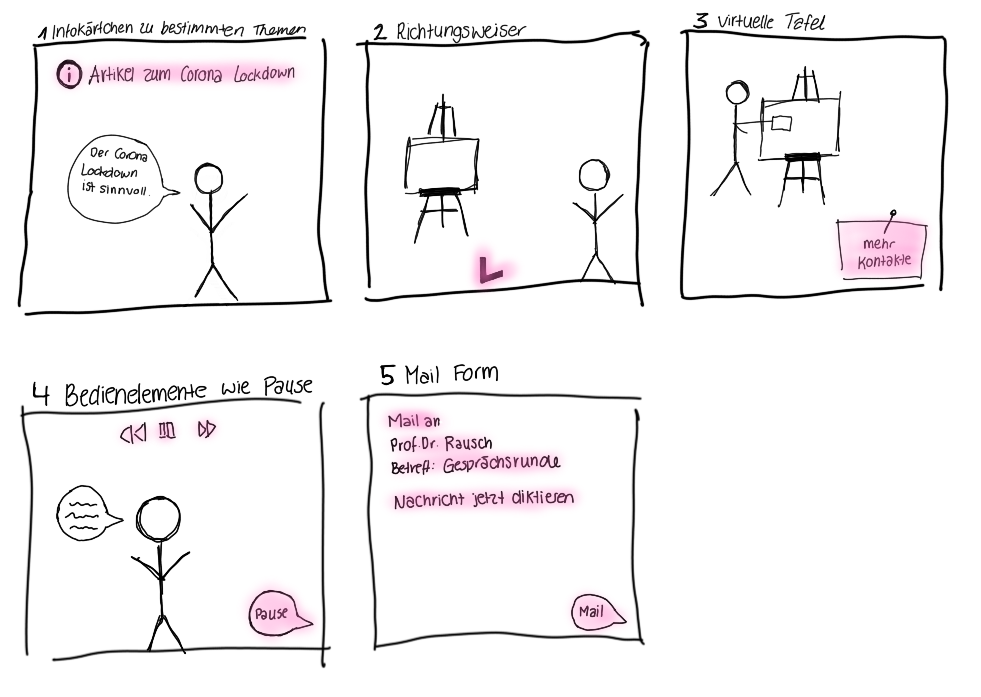 1 Infokärtchen zu bestimmten Themen
i Artikel zum Corona Lockdown
Der Corona
Lockdown
ist sinnvoll.
2 Richtungsweiser
3 virtuelle Tafel
mehr
Kontakte
4 Bedienelemente wie Pause
Pause
5 Mail Form
Mail an
Prof. Dr. Rausch
Betreff: Gesprächsrunde
Nachricht jetzt diktieren
Mail